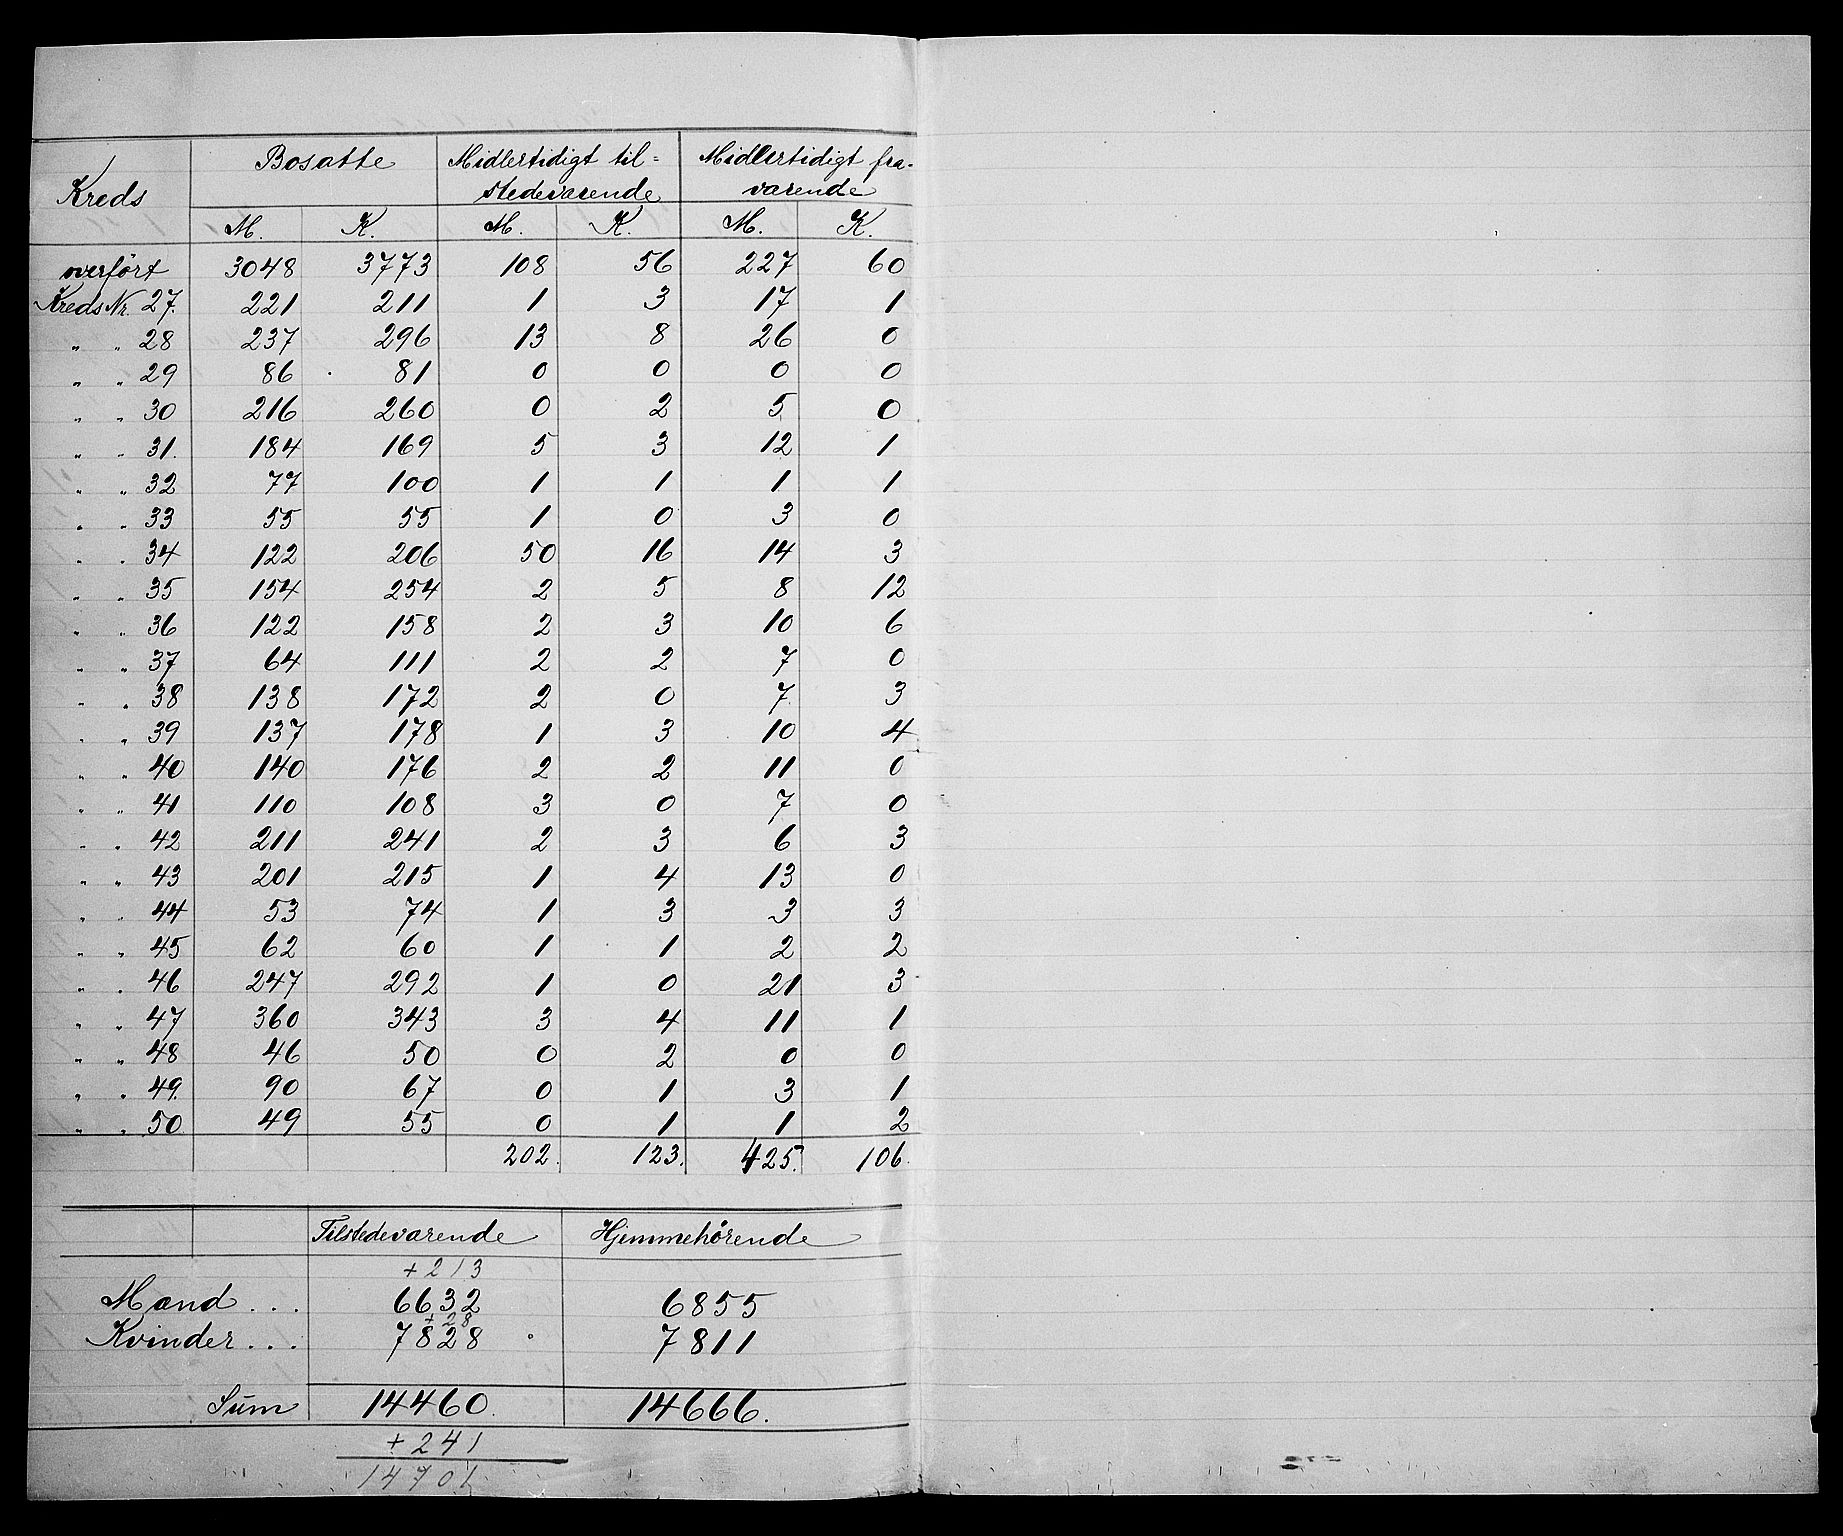 Kreds Bosatte Midlertidigt til= Midlertidigt fra-
stedeværende værende
M. K. M. K. M. K.
overført 3048 3773 108 56 227 60
Kreds Nr. 27. 221 211 1 3 17 1
" " 28 237 296 13 8 26 0
" " 29 86 81 0 0 0 0
" " 30 216 260 0 2 5 0
" " 31. 184 169 5 3 12 1
" " 32 77 100 1 1 1 1
" " 33 55 55 1 0 3 0
" " 34 122 206 50 16 14 3
" " 35 154 254 2 5 8 12
" " 36 122 158 2 3 10 6
" " 37 64 111 2 2 7 0
" " 38 138 172 2 0 7 3
" " 39 137 178 1 3 10 4
" " 40 140 176 2 2 11 0
" " 41 110 108 3 0 7 0
" " 42 211 241 2 3 6 3
" " 43 201 215 1 4 13 0
" " 44 53 74 1 3 3 3
" " 45 62 60 1 1 2 2
" " 46 247 292 1 0 21 3
" " 47 360 343 3 4 11 1
" " 48 46 50 0 2 0 0
" " 49. 90 67 0 1 3 1
" " 50 49 55 0 1 1 2
202. 123. 425. 106.
Tilstedeværende Hjemmehørende
+213
Mænd . . . 6632 6855
+28
Kvinder . . . 7828 7811
Sum 14460. 14666.
+241
14701